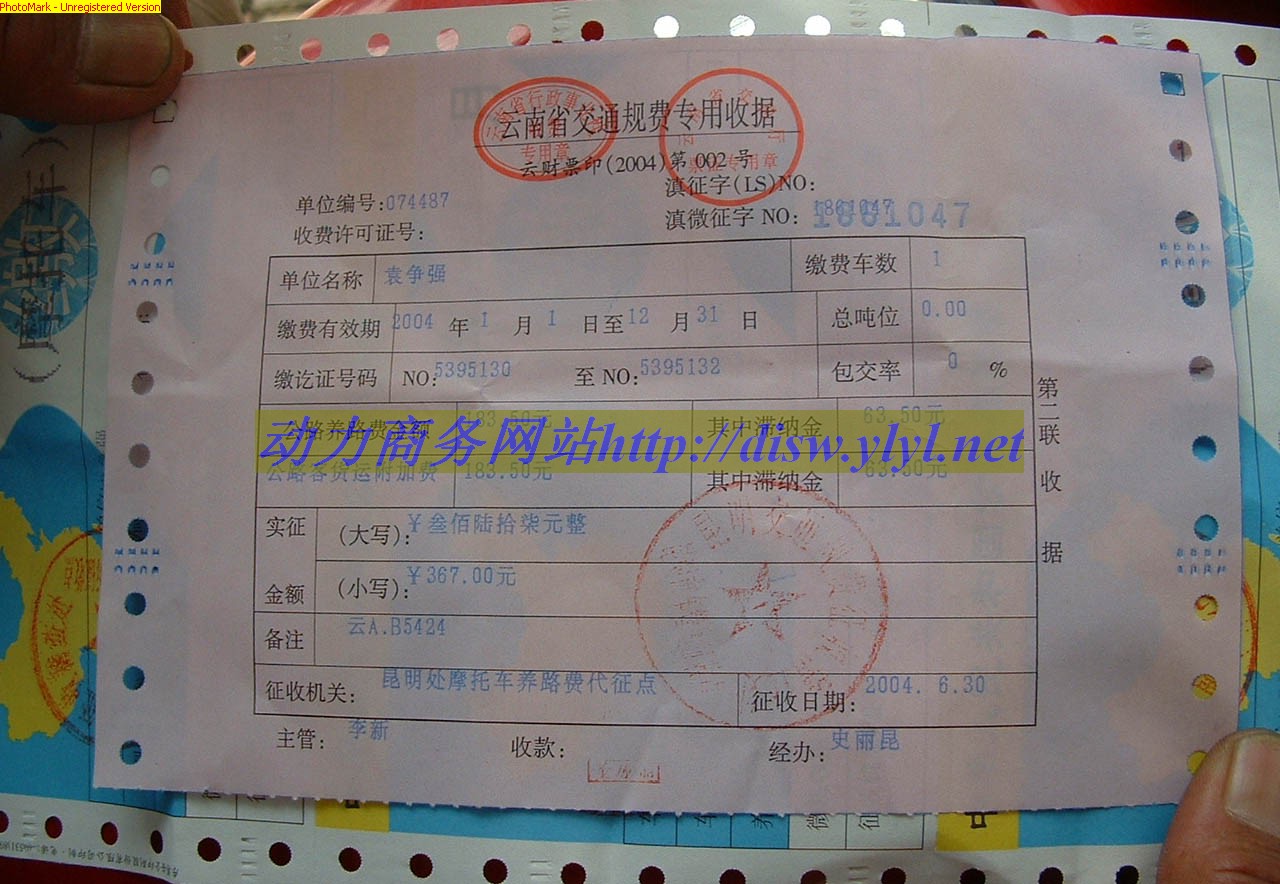 PhotoMark - Unregistered Version
云南省交通规费专用收据
云财票印(2004)第 002 号
单位编号:074487
滇征字(LS)NO:
收费许可证号:
滇微征字 NO: 1861047
单位名称 袁争强 缴费车数 1
缴费有效期 2004 年 1 月 1 日至 12 月 31 日 总吨位 0.00
缴讫证号码 NO:5395130 至 NO:5395132 包交率 0 %
公路养路费金额 183.50元 其中滞纳金 63.50元
动力商务网站http://disw.ylyl.net
公路客货运附加费 183.50元 其中滞纳金 63.50元
实征金额 (大写): ¥叁佰陆拾柒元整
(小写): ¥367.00元
备注 云A.B5424
征收机关: 昆明处摩托车养路费代征点 征收日期: 2004. 6.30
主管: 李新 收款: 经办: 史丽昆
第二联 收据
专用章